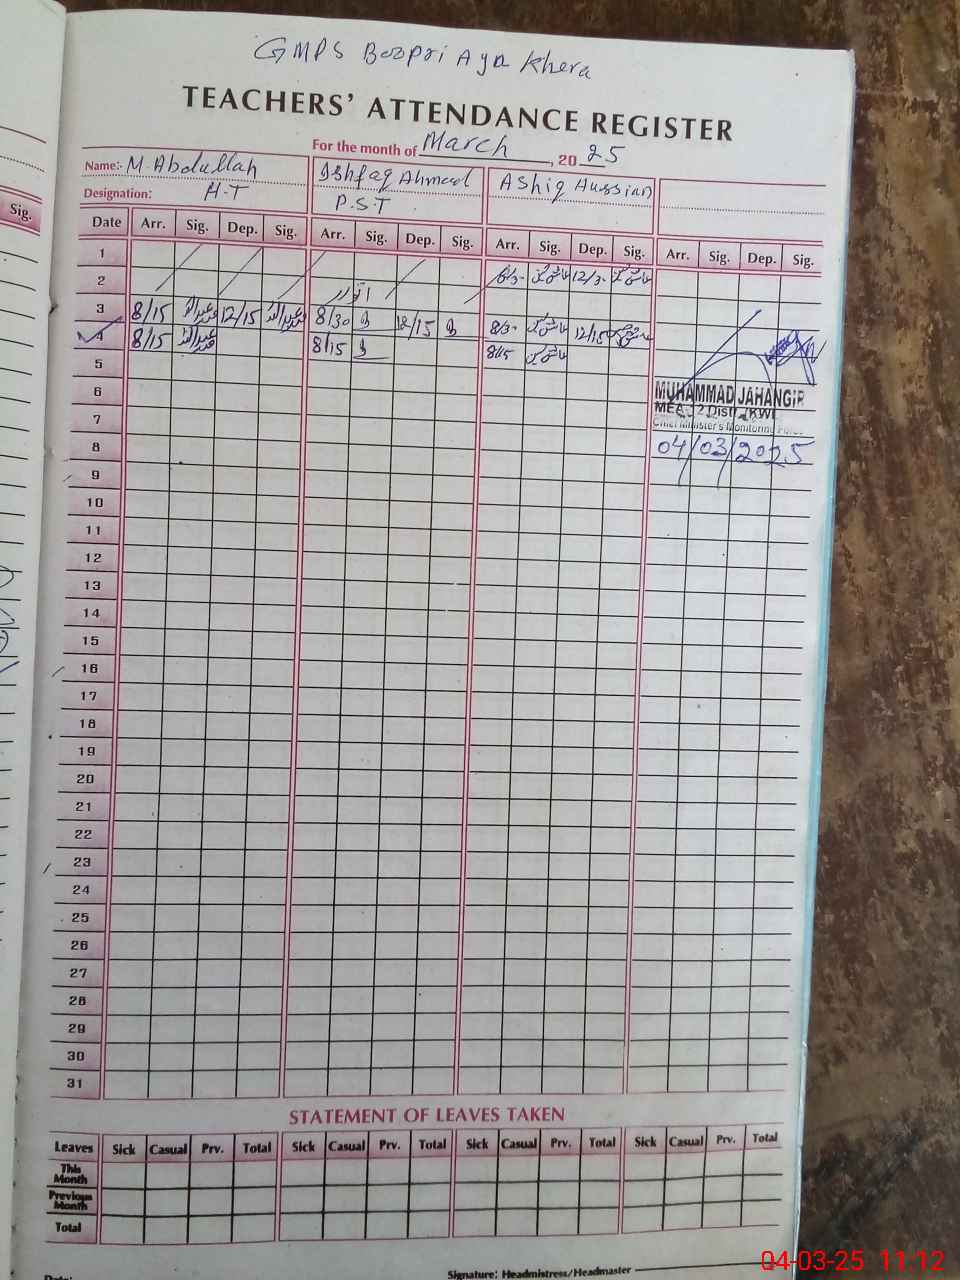 GMPS Boopri Aya Khera
TEACHERS' ATTENDANCE REGISTER
For the month of March, 2025
Name:- M. Abdullah Ishfaq Ahmad Ashiq Hussian
Designation: H.T P.S.T
Sig.
Date Arr. Sig. Dep. Sig. Arr. Sig. Dep. Sig. Arr. Sig. Dep. Sig. Arr. Sig. Dep. Sig.
1
2 8/3- 12/3-
اتوار
3 8/15 12/15 8/30 12/15 8/3- 12/15
4 8/15 8/15 8/15
5
6
7
8
9
10
11
12
13
14
15
16
17
18
19
20
21
22
23
24
25
26
27
28
29
30
31
MUHAMMAD JAHANGIR
MEA
Chief Minister's Monitoring Force
04/03/2025
STATEMENT OF LEAVES TAKEN
Leaves Sick Casual Prv. Total Sick Casual Prv. Total Sick Casual Prv. Total Sick Casual Prv. Total
This
Month
Previous
Month
Total
Date:
Signature: Headmistress/Headmaster
04-03-25 11:12